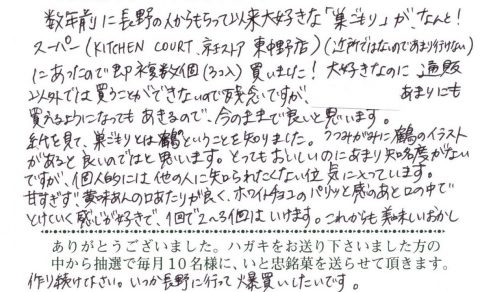 数年前に長野の人からもらって以来大好きな「巣ごもり」が、なんと!
スーパー(KITCHEN COURT.京王ストア 東中野店)(近所ではないのであまり行けない)
にあったので即複数個(3つ入)買いました!大好きなのに通販
以外では買うことができないので残念ですが、 あまりにも
買えるようになってもあきるので、今のままで良いと思います。
紙を見て、巣ごもりとは鶴ということを知りました。つつみがみに鶴のイラスト
があると良いのではと思います。とってもおいしいのにあまり知名度がない
ですが、個人的には他の人に知られたくない位気に入っています。
甘すぎず黄味あんの口あたりが良く、ホワイトチョコのパリッと感のあと口の中で
とけていく感じが好きで、1回で2〜3個はいけます。これからも美味しいおかし
ありがとうございました。ハガキをお送り下さいました方の
中から抽選で毎月10名様に、いと忠銘菓を送らせて頂きます。
作り続けて下さい。いつか長野に行って爆買いしたいです。